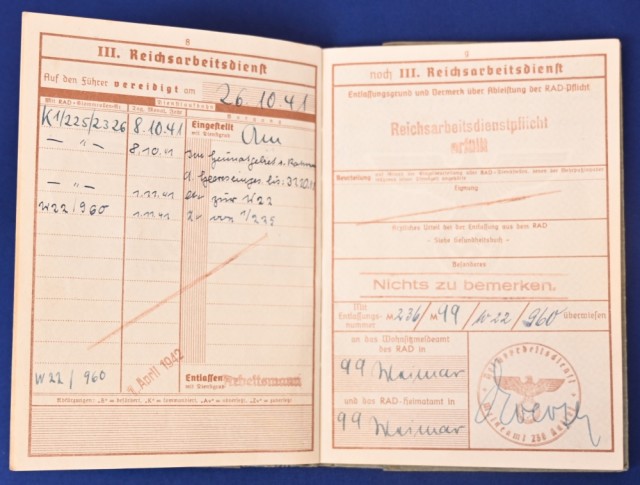 8
III. Reichsarbeitsdienst
Auf den Führer vereidigt am 26.10.41
Mit RAD-Stammrollen-Nr. Tag, Monat, Jahr Dienstlaufbahn
K1/225/2326 8.10.41 Eingestellt
mit Dienstgrad: Am
— " — 8.10.41 Im
bis:
— " — 1.11.41 zur W22
W22/960 1.11.41 Zv von 1/225
W22/960 1. April 1942 Entlassen Arbeitsmann
mit Dienstgrad:
9
noch III. Reichsarbeitsdienst
Entlassungsgrund und Vermerk über Ableistung der RAD-Pflicht
Reichsarbeitsdienstpflicht
erfüllt
Beurteilung
Eignung
Ärztliches Urteil bei der Entlassung aus dem RAD
– Siehe Gesundheitsbuch –
Besonderes
Nichts zu bemerken.
Mit Entlassungs-
nummer M236/M99/W22/960 überwiesen
an das Wohnsitzmeldeamt
des RAD in
99 Weimar
und das RAD-Heimatamt in
99 Weimar
Reichsarbeitsdienst